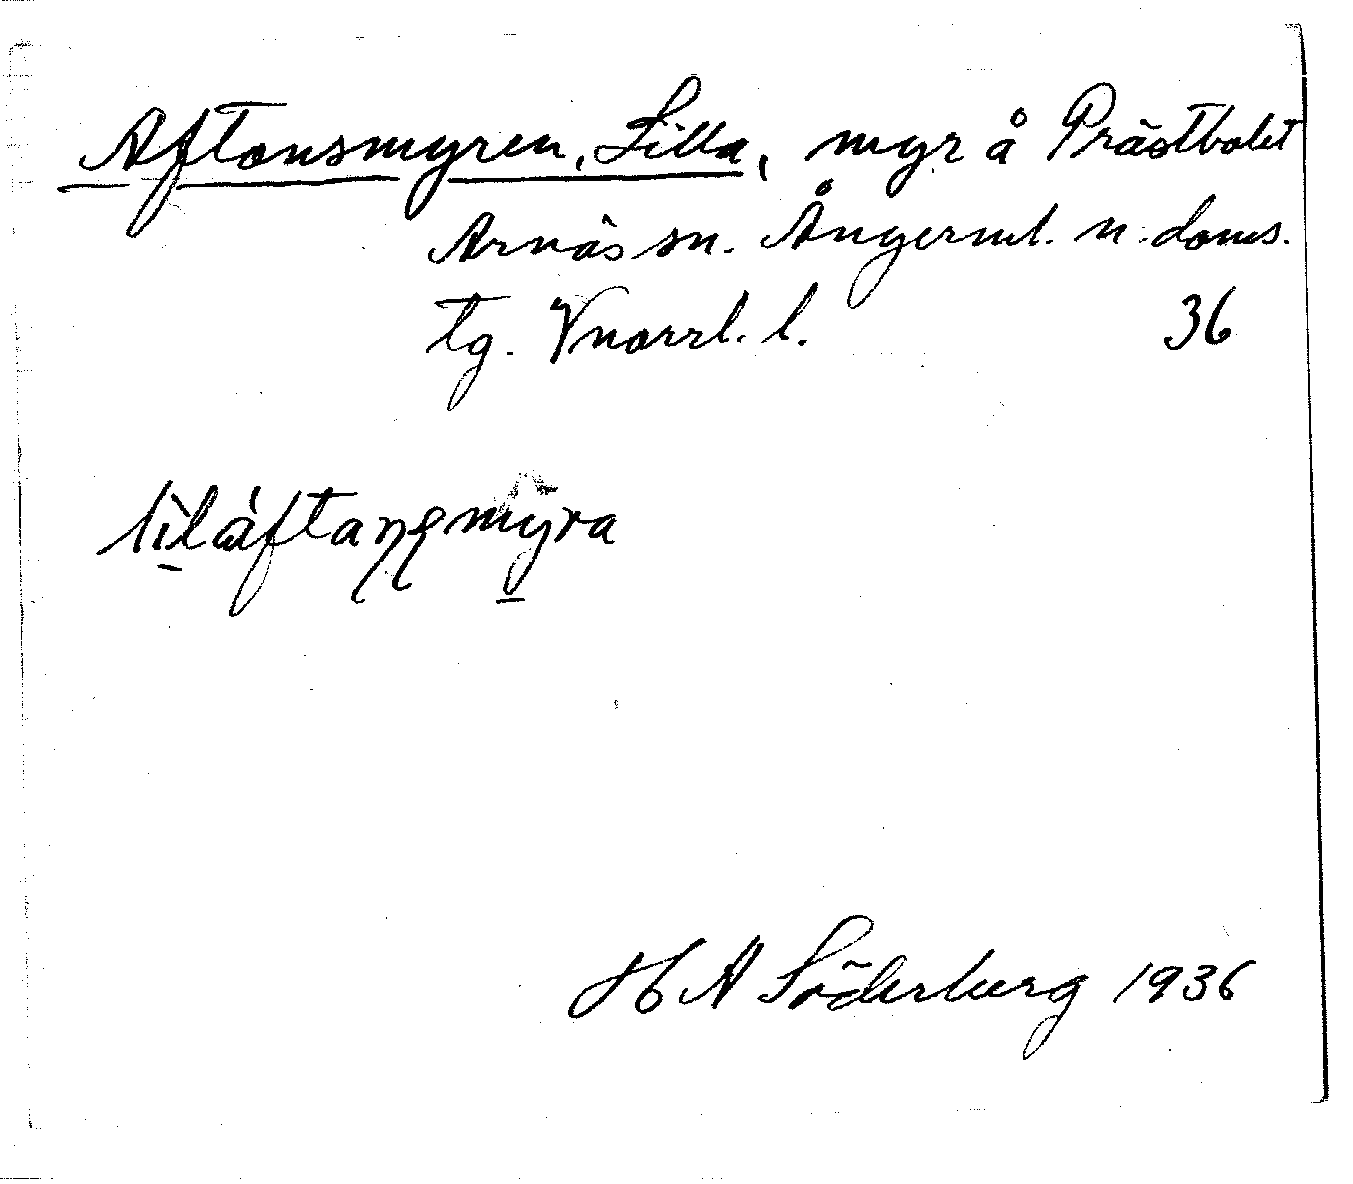 Aftonsmyren, Lilla, myr å Prästbolet
Arnäs sn. Ångerml. n. doms.
tg. Vnorrl. l. 36
lilàftaꞃꞔmyra
H A Söderberg 1936